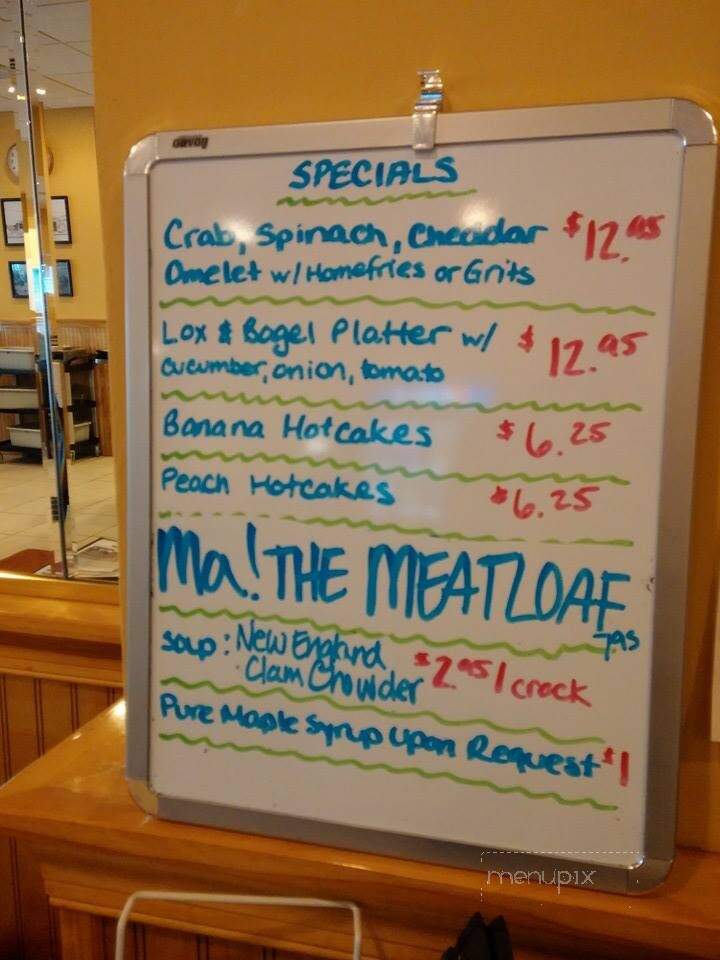 SPECIALS
Crab, Spinach, Cheddar $12.95
Omelet w/ Homefries or Grits
Lox & Bagel Platter w/ $12.95
cucumber, onion, tomato
Banana Hotcakes $6.25
Peach Hotcakes $6.25
Ma! THE MEATLOAF
7.95
Soup: New England
Clam Chowder $2.95/crock
Pure Maple Syrup Upon Request $1
menupix